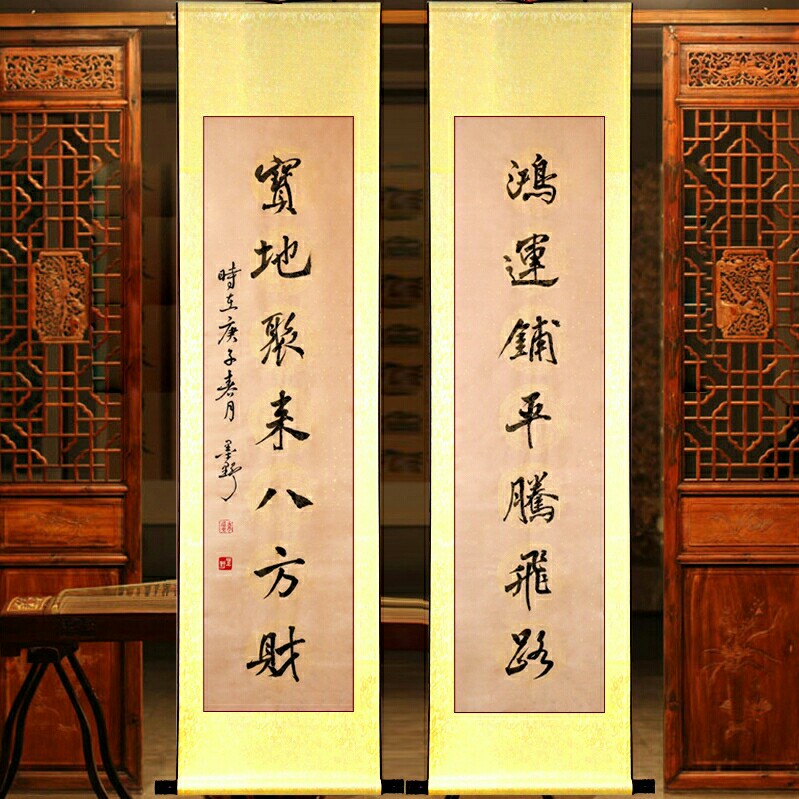 鴻運鋪平騰飛路
寶地聚来八方財
時在庚子春月 墨野